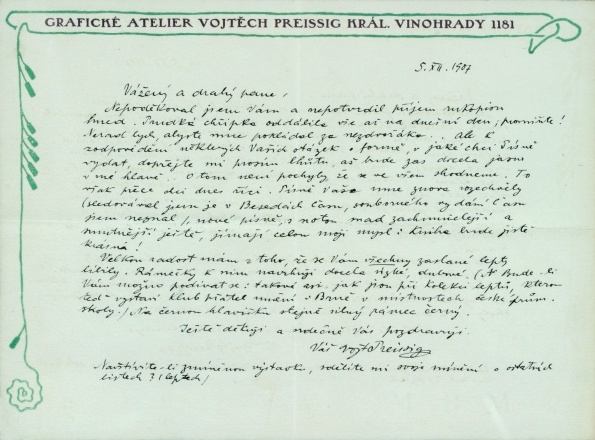 GRAFICKÉ ATELIER VOJTĚCH PREISSIG KRÁL. VINOHRADY 1181
5. XII. 1907
Vážený a drahý pane,
Nepoděkoval jsem Vám a nepotvrdil příjem rukopisu
hned. Prudká chřipka oddálila vše až na dnešní den; promiňte!
Nerad bych, abyste mne pokládal za nezdvořáka. Ale k
zodpovědění některých Vašich otázek o formě, v jaké chci Písně
vydat, dopřejte mi prosím lhůtu, až bude zas docela jasno
v mé hlavě. O tom není pochyby že se ve všem shodneme. To
však přece dei dnes říci. Písně Vaše mne znova rozechvěly
(sledoval jsem je v Besedách Času, souborného vydání Času
jsem neznal), nové písně, s notou snad zachmuřelejší a
smutnější ještě, jímají celou moji mysl: Kniha bude jistě
krásná!
Velkou radost mám z toho, že se Vám všechny zaslané lepty
líbily. Rámečky k nim navrhuji docela úzké, dubové. (A Bude-li
Vám možno podívat se: takové asi, jak jsou při kolekci leptů, kterou
teď vystaví klub přátel umění v Brně v místnostech české prům.
školy.) Na černou hlavičku stejně silný rámec černý.
Ještě děkuji a srdečně Vás pozdravuji.
Váš Vojt Preissig
Navštívíte-li zmíněnou výstavku, sdělte mi svoje mínění o ostatních
listech (leptech)